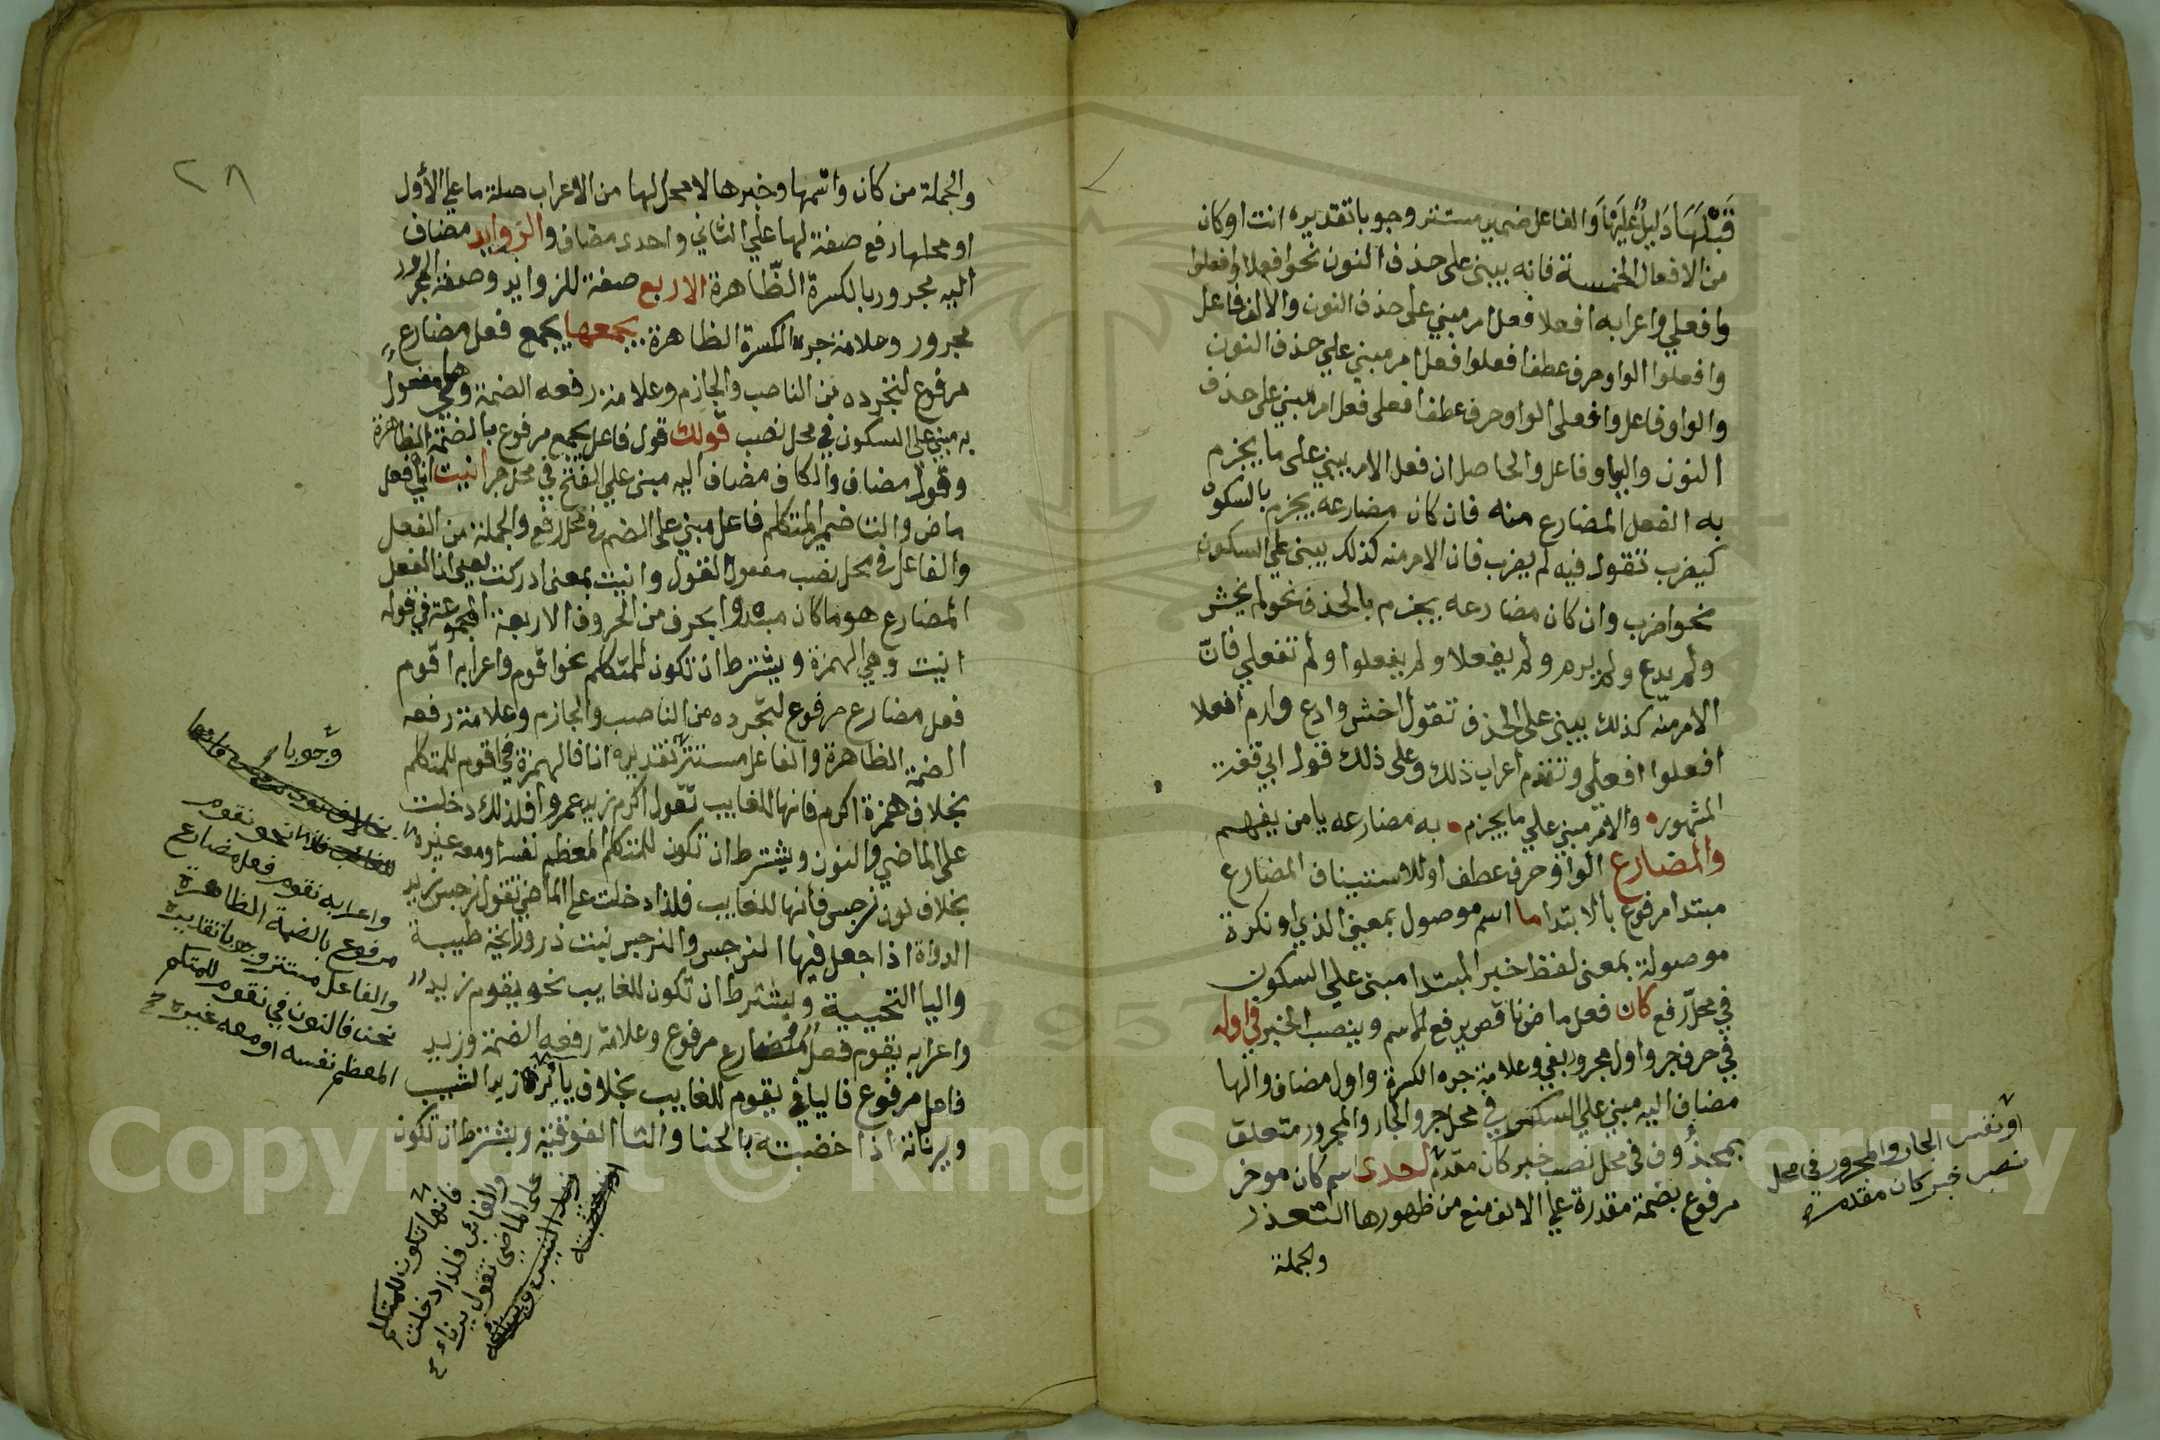 قَبْلَهَا دَلِيلٌ عَلَيْهَا والفاعل ضمير مستتر وجوبا تقديره انت اوكان
من الافعال الخمسة فانه يبني على حذف النون نحو افعلا وافعلوا
وافعلي واعرابه افعلا فعل امر مبني على حذف النون والالف فاعل
وافعلوا الواو حرف عطف افعلوا فعل امر مبني علي حذف النون
والواو فاعل وافعلى الواو حرف عطف افعلى فعل امر مبني على حذف
النون والياء فاعل والحاصل ان فعل الامر يبني على ما يجزم
به الفعل المضارع منه فان كان مضارعه يجزم بالسكون
كيضرب تقول فيه لم يضرب فان الامر منه كذلك يبنى علي السكون
نحو اضرب وان كان مضارعه يجزم بالحذف نحو لم يخش
ولم يدع ولم يرم ولم يفعلا ولم يفعلوا ولم تفعلي فانّ
الامر منه كذلك يبنى على الحذف تقول اخش وادع وارم افعلا
افعلوا افعلى وتقدم اعراب ذلك وعلى ذلك قول ابي
المشهوره والامر مبني علي ما يجزم به مضارعه يا من يفهم
والمضارع الواو حرف عطف او للاستيناف المضارع
مبتدا مرفوع بالابتدا ما اسم موصول بمعني الذي او نكرة
موصولة بمعنى لفظ خبر المبتدا مبنى علي السكون
في محل رفع كان فعل ماض ناقص يرفع الاسم وينصب الخبر في اوله
في حرف جر واول مجرور بفي وعلامة جره الكسرة واول مضاف والها
مضاف اليه مبني علي السكون في محل جر والجار والمجرور متعلق
بمحذوف في محل نصب خبر كان مقدم احدى اسم كان موخر
مرفوع بضمة مقدرة علي الالف منع من ظهورها التعذر
والجملة
او نفس الجار والمجرور في محل
نصب خبر كان مقدم
٢٨
والجملة من كان واسمها وخبرها لا محل لها من الاعراب صلة ما علي الأول
او محلها رفع صفة لها علي الثاني واحدى مضاف والزوايد مضاف
اليه مجرور بالكسرة الظّاهرة الاربع صفة للزوايد وصفة المجرور
مجرور وعلامة جره الكسرة الظاهرة يجمعها يجمع فعل مضارع
مرفوع لتجرده من الناصب والجازم وعلامة رفعه الضمة وها مفعول
به مبني على السكون في محل نصب قولك قول فاعل يجمع مرفوع بالضمة الظاهرة
وقول مضاف والكاف مضاف اليه مبنى علي الفتح في محل جر انيت اني فعل
ماض والتا ضمير المتكلم فاعل مبني على الضم في محل رفع والجملة من الفعل
والفاعل في محل نصب مفعول القول وانيت بمعنى ادركت يعني ان الفعل
المضارع هو ما كان مبدوا بحرف من الحروف الاربعة المجموعة في قوله
انيت وهي الهمزة ويشترط ان تكون للمتكلم نحو اقوم واعرابه اقوم
فعل مضارع مرفوع لتجّرده من الناصب والجازم وعلامة رفعه
الضمة الظاهرة والفاعل مستتر تقديره انا فالهمزة في اقوم للمتكلم
بخلاف همزة اكرم فانها للغايب تقول اكرم زيد عمروا فلذلك دخلت
على الماضي والنون ويشترط ان تكون للمتكلم المعظم نفسه او معه غيره
بخلاف نون نرجس فانها للغايب فلذا دخلت على الماضي تقول نرجس زيد
الدواة اذا جعل فيها النرجس والنرجس نبت ذو رائحة طيبة
واليا التحتية ويشترط ان تكون للغايب نحو يقوم زيد
واعرابه يقوم فعل مضارع مرفوع وعلامة رفعه الضمة وزيد
فاعل مرفوع فاليا في يقوم للغايب بخلاف يا يرنا زيد الشيب
ويرناته اذا خضبته بالحنا والتا الفوقية ويشترط ان تكون
وجوبا
نحو نقوم
واعرابه نقوم فعل مضارع
مرفوع بالضمة الظاهرة
والفاعل مستتر وجوبا تقديره
نحن فالنون في نقوم للمتكلم
المعظم نفسه او معه غيره
فانها تكون للمتكلم
والغائب فلذا دخلت
على الماضي تقول يرناء